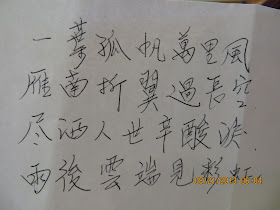 一葉孤帆萬里風
雁南折翼過長空
尽洒人世辛酸淚.
雨後雲端見彩虹